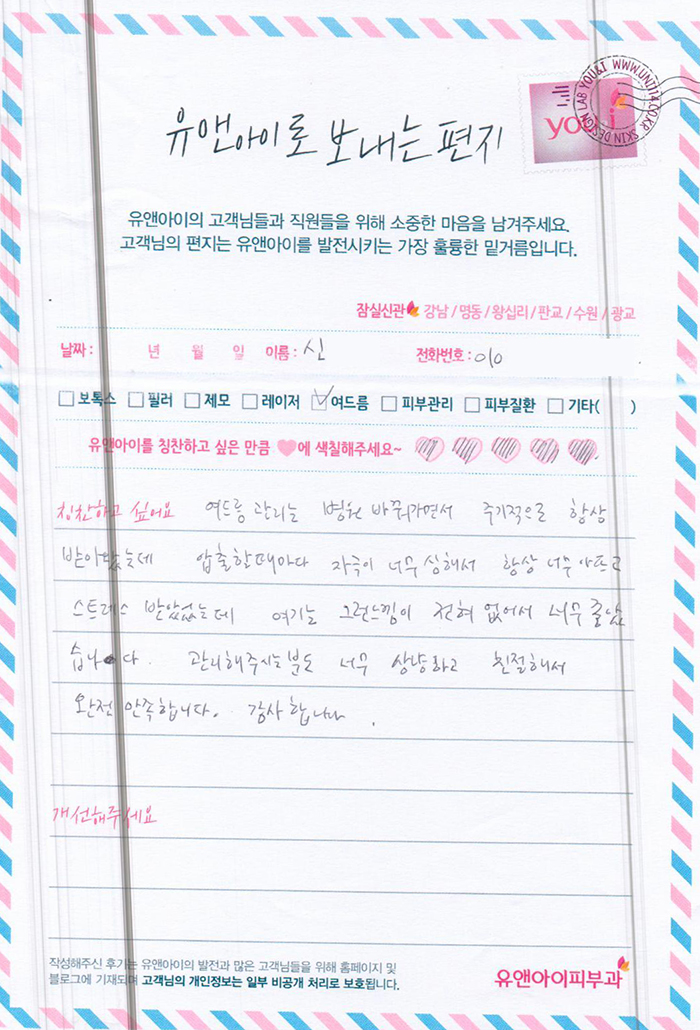 유앤아이로 보내는 편지
you&i
SKIN DESIGN LAB YOU&I WWW.UNI114.CO.KR
유앤아이의 고객님들과 직원들을 위해 소중한 마음을 남겨주세요.
고객님의 편지는 유앤아이를 발전시키는 가장 훌륭한 밑거름입니다.
잠실신관 강남 / 명동 / 왕십리 / 판교 / 수원 / 광교
날짜 : 년 월 일 이름 : 신 전화번호 : 010
보톡스 필러 제모 레이저 여드름 피부관리 피부질환 기타( )
유앤아이를 칭찬하고 싶은 만큼 에 색칠해주세요~
칭찬하고 싶어요 여드름 관리는 병원 바꿔가면서 주기적으로 항상
받아왔는데 압출할때마다 자극이 너무 심해서 항상 너무 아프고
스트레스 받았었는데 여기는 그런느낌이 전혀 없어서 너무 좋았
습니다. 관리해주시는분도 너무 상냥하고 친절해서
완전 만족합니다. 감사합니다.
개선해주세요
작성해주신 후기는 유앤아이의 발전과 많은 고객님들을 위해 홈페이지 및
블로그에 기재되며 고객님의 개인정보는 일부 비공개 처리로 보호됩니다.
유앤아이피부과